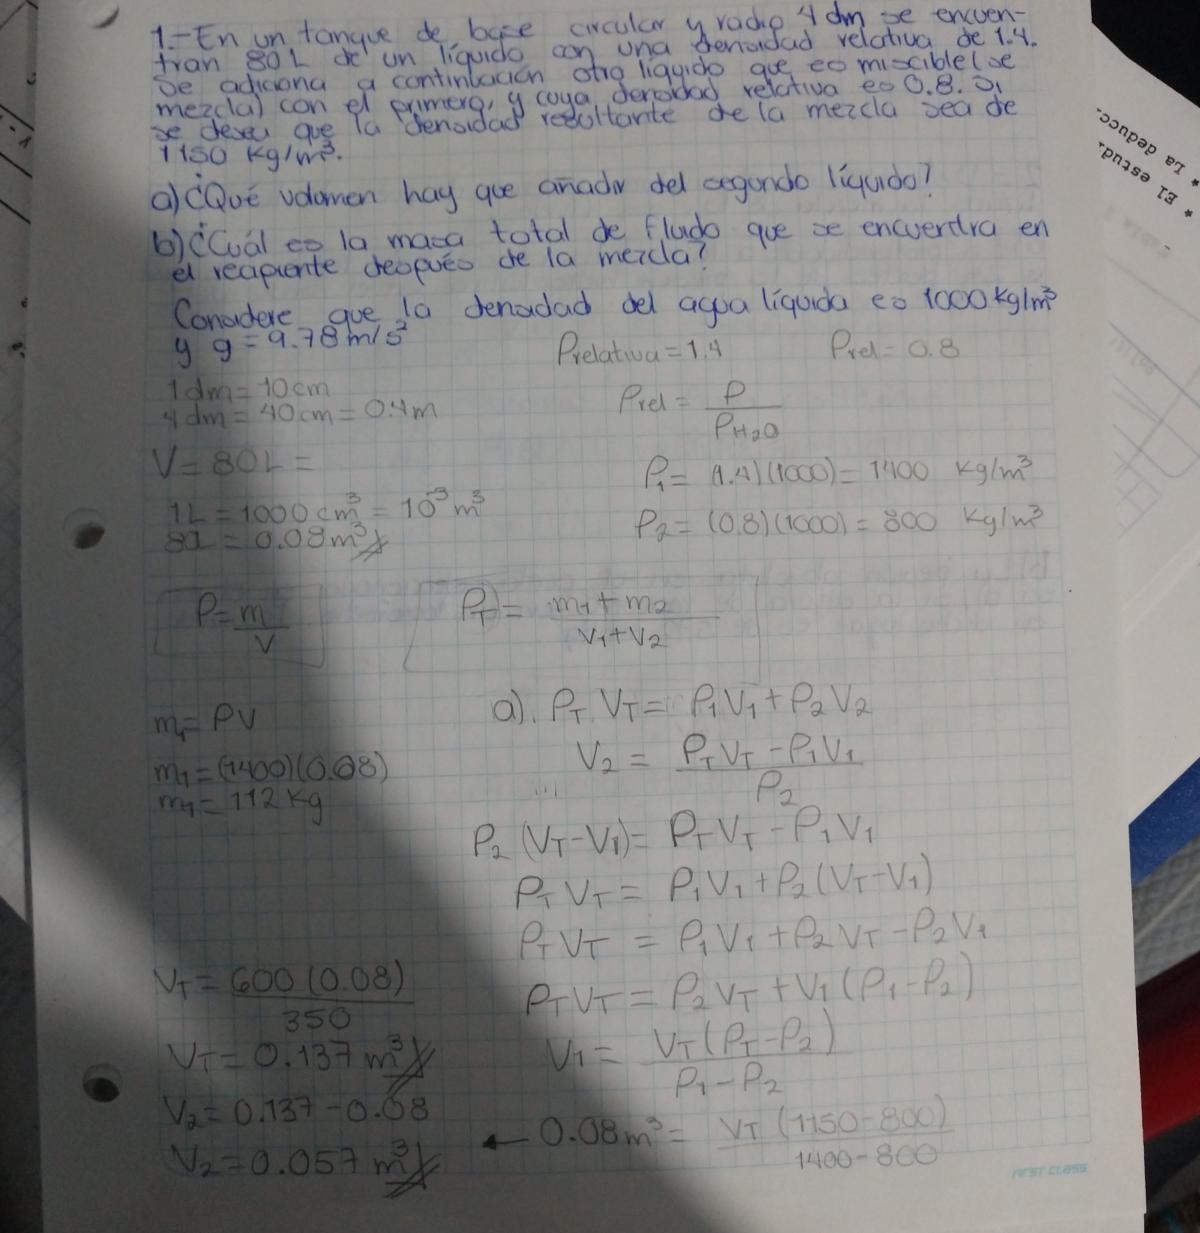 1.- En un tanque de base circular y radio 4 dm se encuen-
tran 80L de un líquido con una densidad relativa de 1.4.
Se adiciona a continuación otro líquido que es miscible (se
mezcla) con el primero, y cuya densidad relativa es 0.8. Si
se desea que la densidad resultante de la mezcla sea de
1150 kg/m³.
a) ¿Qué volumen hay que añadir del segundo líquido?
b) ¿Cuál es la masa total de fluido que se encuentra en
el recipiente después de la mezcla?
Considere que la densidad del agua líquida es 1000 kg/m³
y g = 9.78 m/s²
Prelativa = 1.4 Prel = 0.8
1dm = 10cm
4dm = 40cm = 0.4m
Prel = P / PH₂O
V = 80L =
P₁ = (1.4)(1000) = 1400 kg/m³
1L = 1000 cm³ = 10⁻³ m³
80L = 0.08m³
P₂ = (0.8)(1000) = 800 kg/m³
P = m / V
PT = m₁ + m₂ / V₁ + V₂
m₁ = PV
m₁ = (1400)(0.08)
m₁ = 112 kg
a). PT VT = P₁V₁ + P₂V₂
V₂ = PTVT - P₁V₁ / P₂
P₂ (VT - V₁) = PTVT - P₁V₁
PTVT = P₁V₁ + P₂(VT - V₁)
PTVT = P₁V₁ + P₂VT - P₂V₁
PTVT = P₂VT + V₁(P₁ - P₂)
V₁ = VT(PT - P₂) / P₁ - P₂
0.08m³ = VT (1150 - 800) / 1400 - 800
VT = 600 (0.08) / 350
VT = 0.137 m³
V₂ = 0.137 - 0.08
V₂ = 0.057 m³
FIRST CLASS
* La deducc.
* El estud.